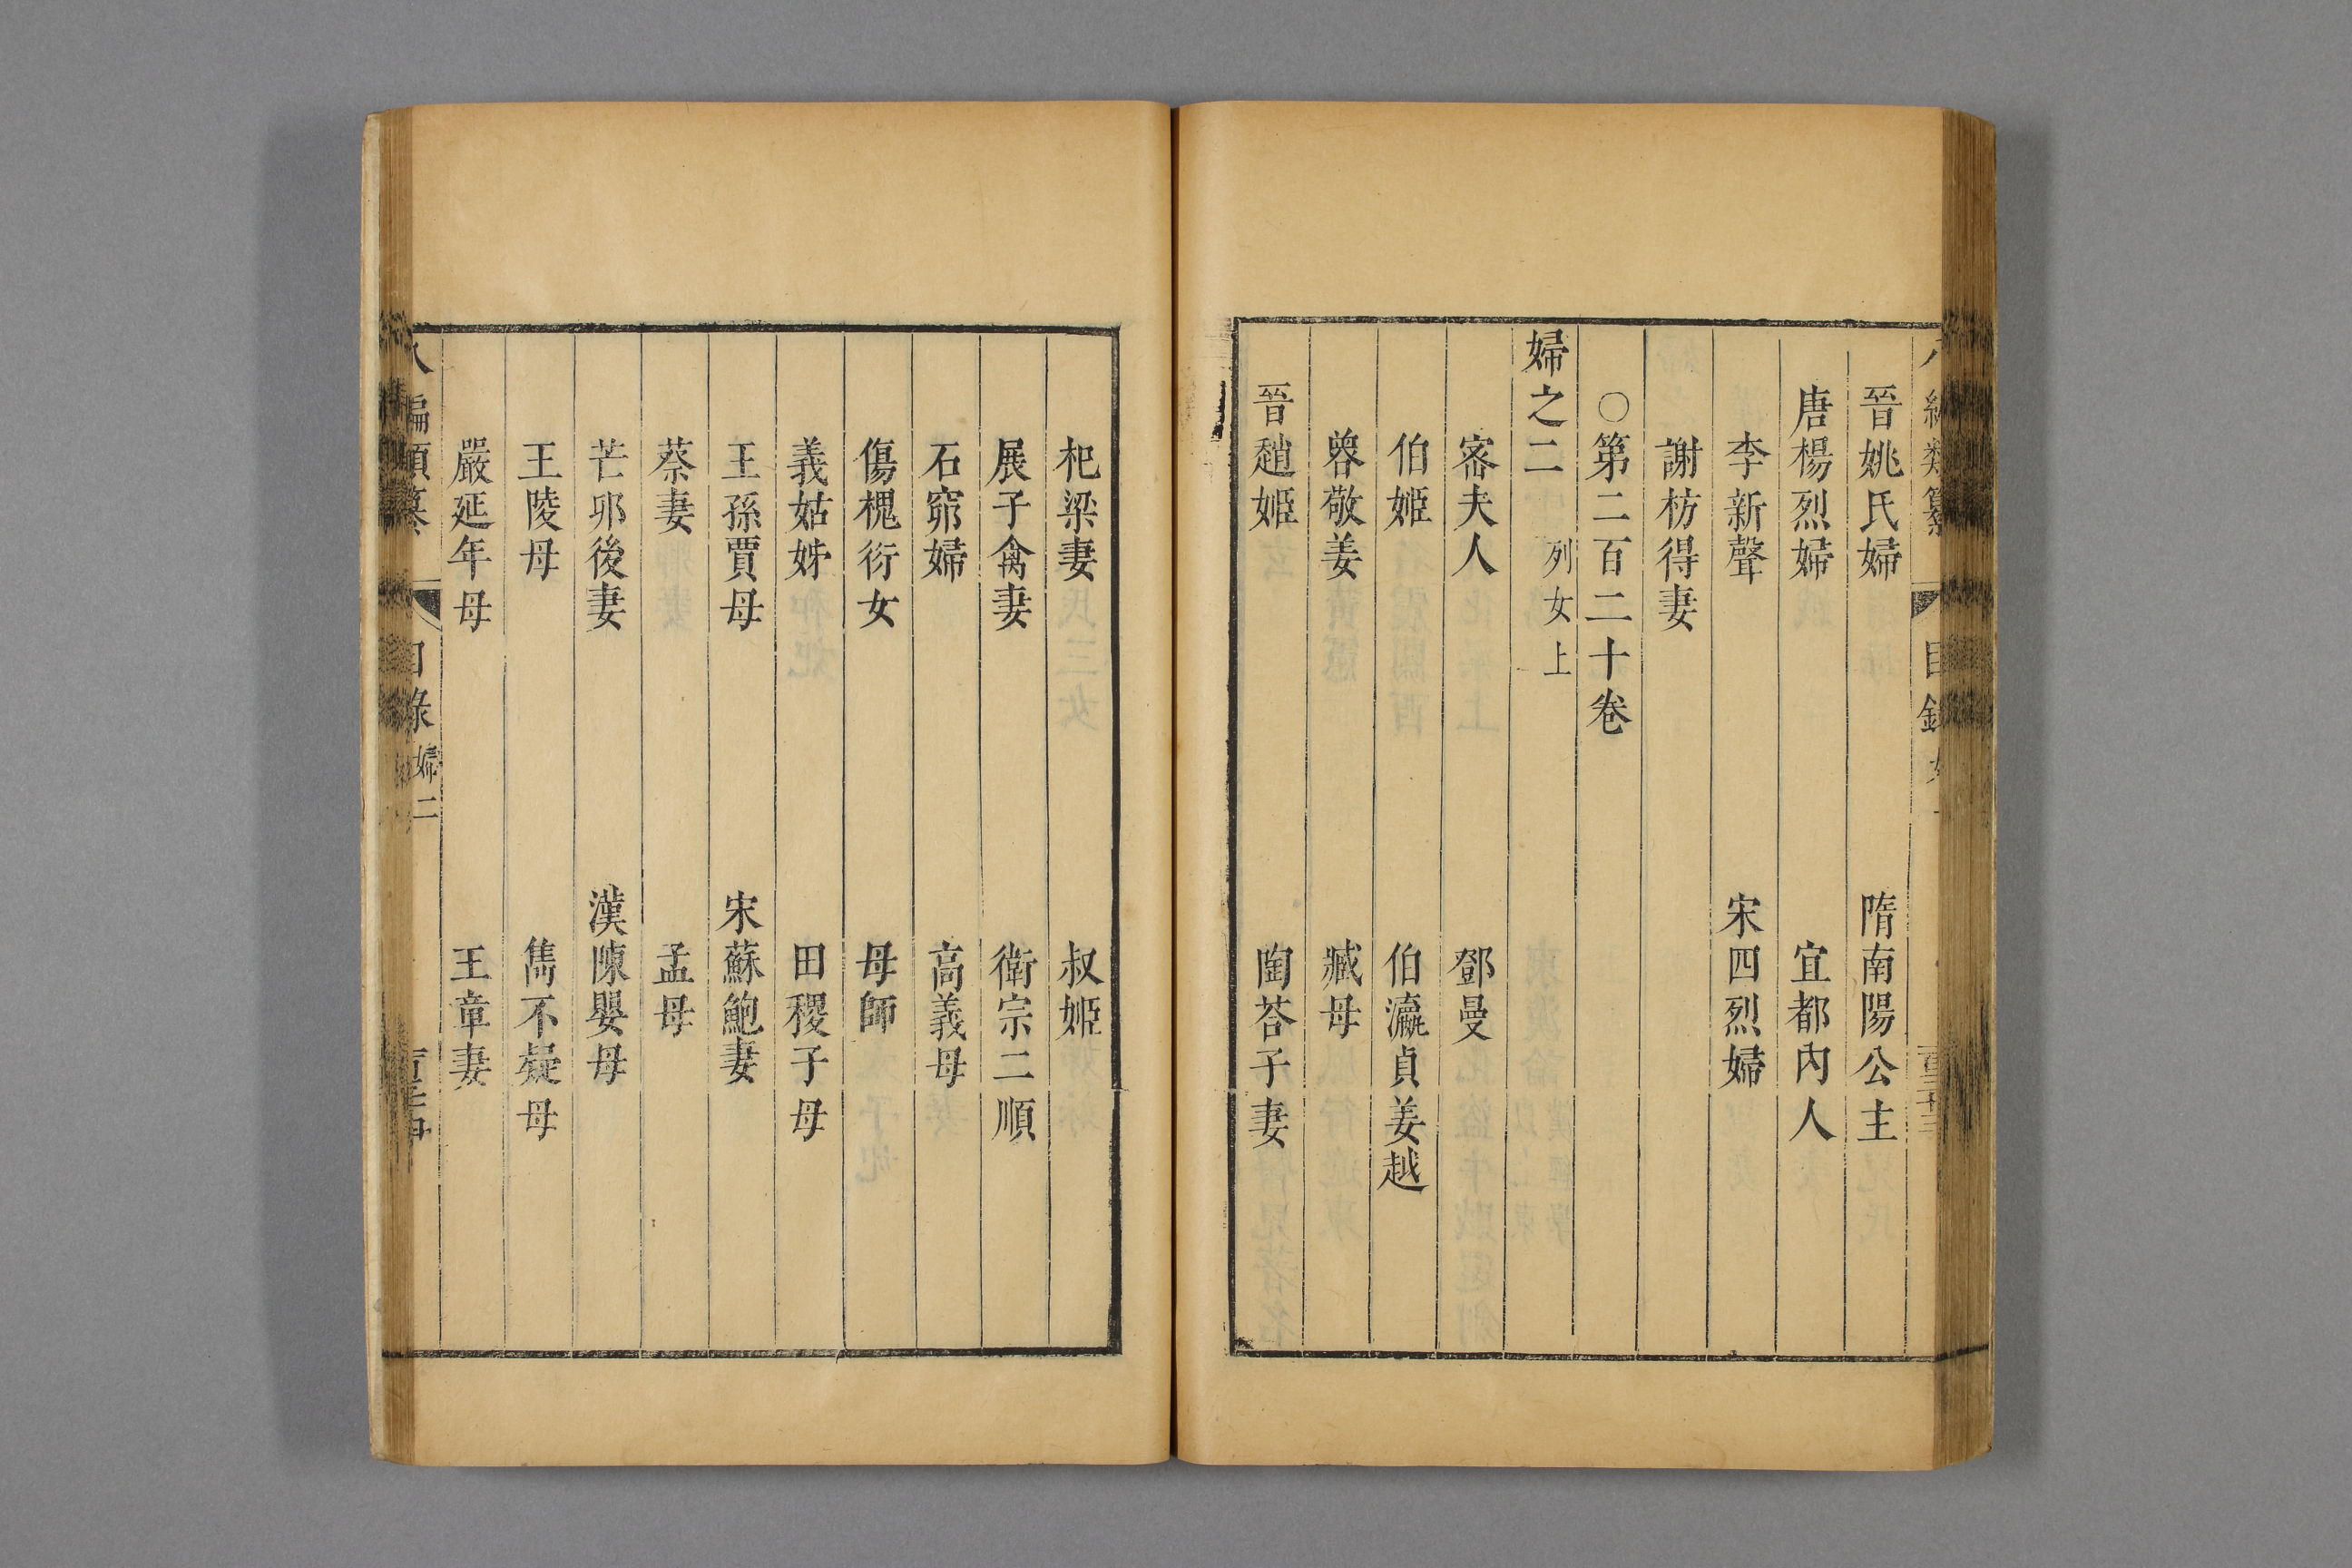 晉姚氏婦　隋南陽公主
唐楊烈婦　宜都內人
李新聲　宋四烈婦
謝枋得妻
○第二百二十卷
婦之二　列女上
密夫人　鄧曼
伯姬　伯瀛貞姜越
魯敬姜　臧母
晉趙姬　陶荅子妻
杞梁妻　叔姬
展子禽妻　衛宗二順
石窌婦　高義母
傷槐衍女　母師
義姑姊　田稷子母
王孫賈母　宋蘇鮑妻
蔡妻　孟母
芒卯後妻　漢陳嬰母
王陵母　雋不疑母
嚴延年母　王章妻
目錄　婦二